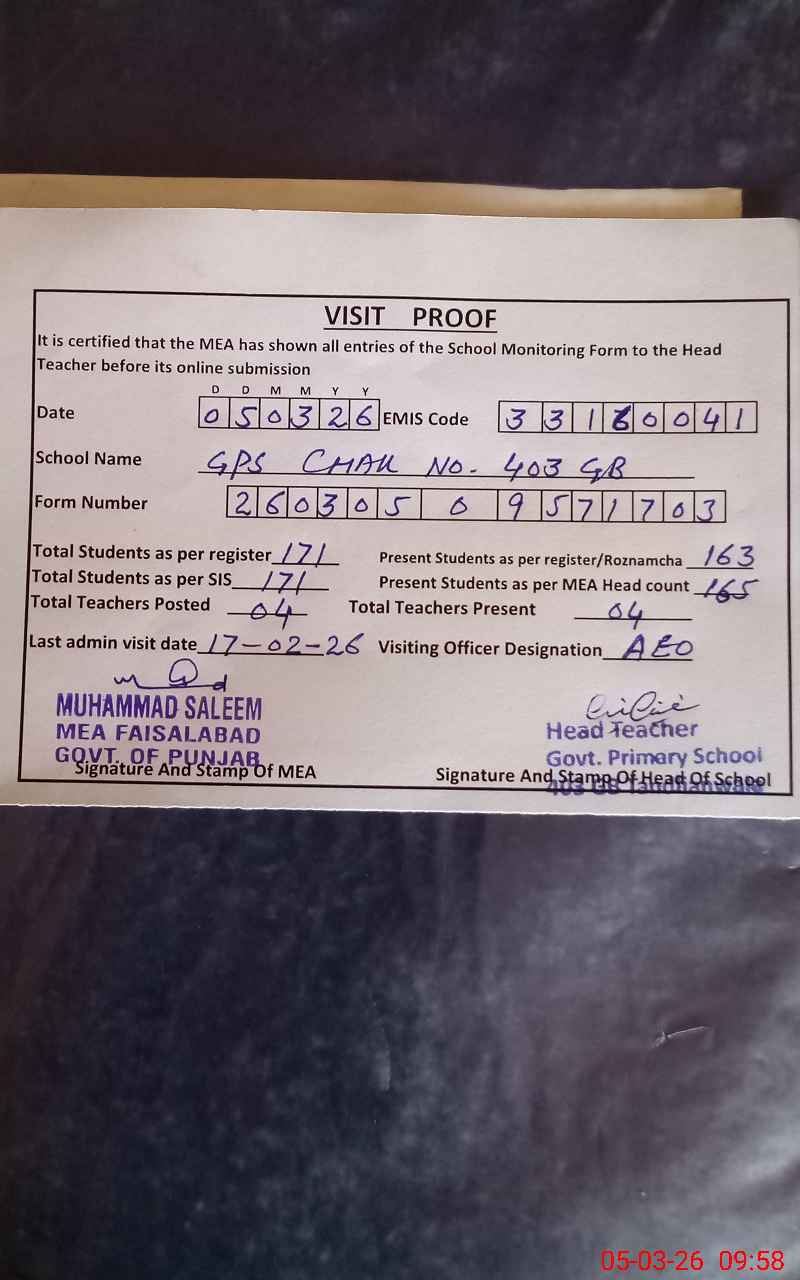 VISIT PROOF
It is certified that the MEA has shown all entries of the School Monitoring Form to the Head
Teacher before its online submission
D D M M Y Y
Date 050326 EMIS Code 33160041
School Name GPS CHAK NO. 403 GB
Form Number 2603050957 1703
Total Students as per register 171 Present Students as per register/Roznamcha 163
Total Students as per SIS 171 Present Students as per MEA Head count 165
Total Teachers Posted 04 Total Teachers Present 04
Last admin visit date 17-02-26 Visiting Officer Designation AEO
MUHAMMAD SALEEM
MEA FAISALABAD
GOVT. OF PUNJAB
Signature And Stamp Of MEA
Head Teacher
Govt. Primary School
403 GB
Signature And Stamp Of Head Of School
05-03-26 09:58